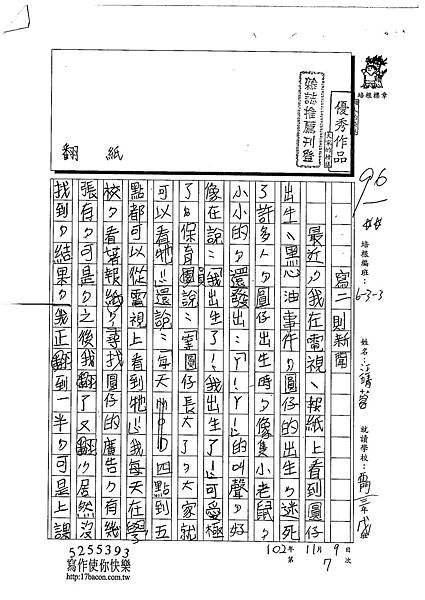 優秀作品
大家的榜樣
雜誌推薦刊登
培根標章
翻紙
96
培根編班：6-3-3
姓名：
就讀學校：
寫二則新聞
最近，我在電視、報紙上看到圓仔
出生、黑心油事件，圓仔的出生，迷死
了許多人，圓仔出生時，像隻小老鼠，
小小的，還發出：「ㄚ！ㄚ！」的叫聲，好
像在說：「我出生了！我出生了！」可愛極
了。保育團員說：「軍圓仔長大了，大家就
可以看牠！」還說：「每天 四點到五
點都可以從電視上看到牠！」我每天在學
校，看著報紙，尋找圓仔的廣告，有幾
張有，可是，之後我翻了又翻，居然沒
找到，結果，我正翻到一半，可是上課
102年11月9日
第7次
5255393
寫作使你快樂
http://17bacon.com.tw